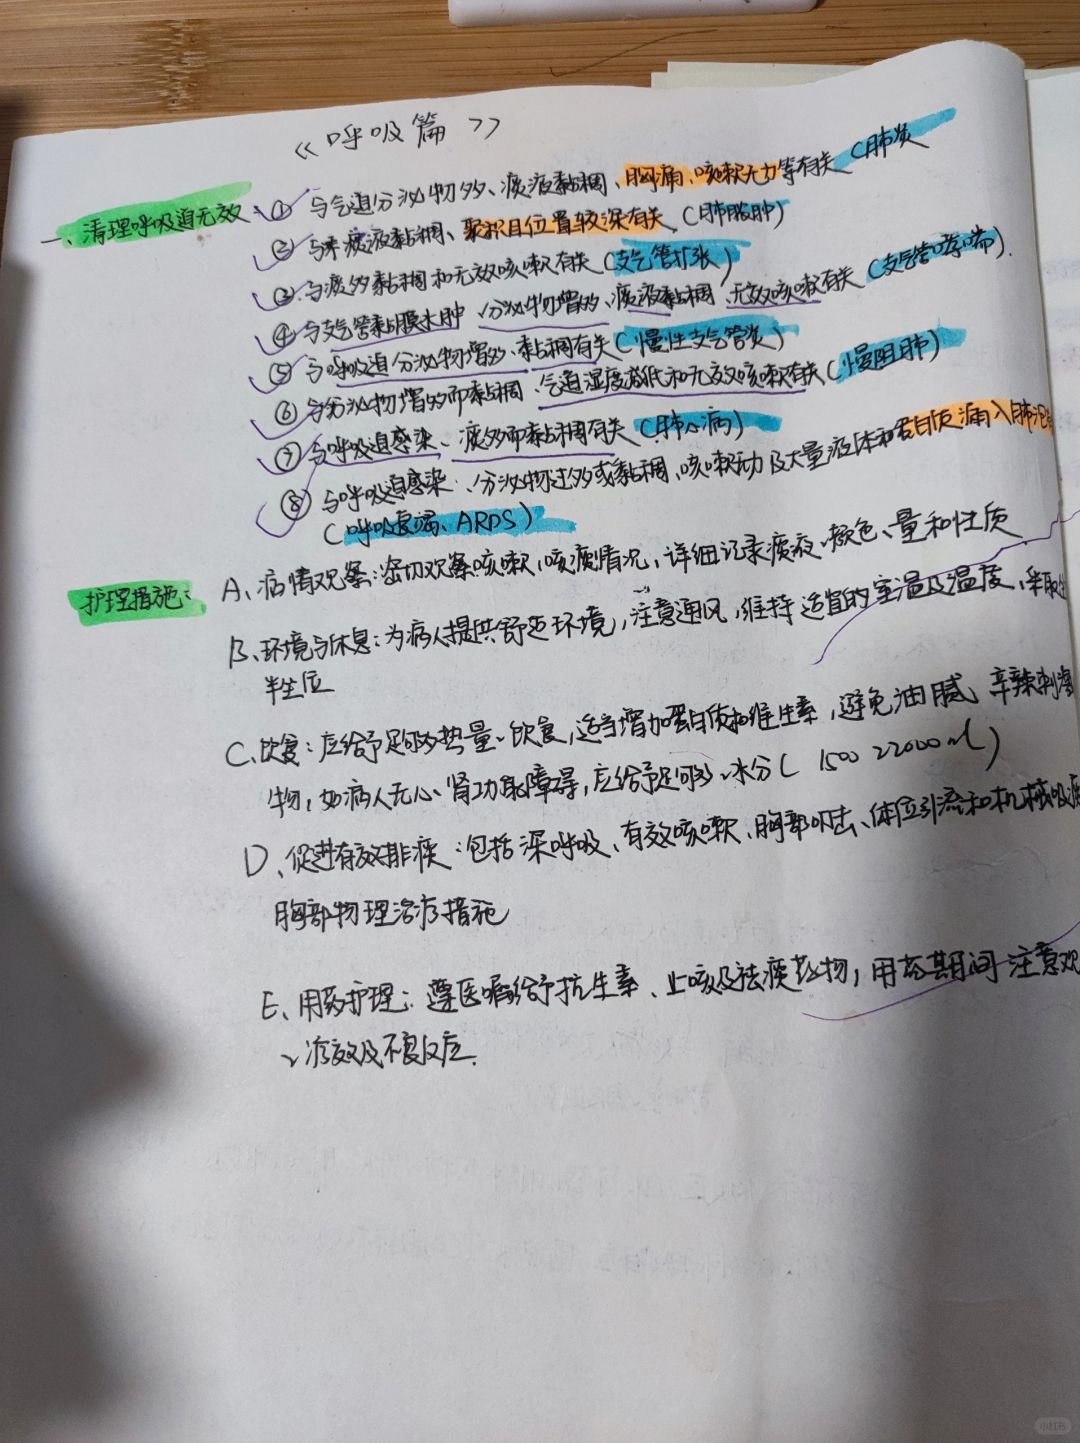 《呼吸篇》
一、清理呼吸道无效: ① 与气道分泌物多、痰液黏稠、胸痛、咳嗽无力等有关（肺炎
② 与痰液黏稠、聚积且位置较深有关（肺脓肿）
③ 与痰多黏稠和无效咳嗽有关（支气管扩张）
④ 与支气管黏膜水肿、分泌物增多、痰液黏稠、无效咳嗽有关（支气管哮喘）.
⑤ 与呼吸道分泌物增多、黏稠有关（慢性支气管炎）
⑥ 与分泌物增多而黏稠、气道湿度减低和无效咳嗽有关（慢阻肺）
⑦ 与呼吸道感染、痰多而黏稠有关（肺心病）
⑧ 与呼吸道感染、分泌物过多或黏稠、咳嗽无力及大量液体和蛋白质漏入肺泡
（呼吸衰竭、ARDS）
护理措施: A、病情观察: 密切观察咳嗽、咳痰情况，详细记录痰液、颜色、量和性质
B、环境与休息: 为病人提供舒适环境，注意通风，维持适宜的室温及温度，采取坐
半坐位
C、饮食: 应给予足够热量、饮食，适当增加蛋白质和维生素，避免油腻 辛辣刺激
物，如病人无心、肾功能障碍，应给予足够、水分（1500~2000ml）
D、促进有效排痰: 包括深呼吸、有效咳嗽、胸部叩击、体位引流和机械吸痰
胸部物理治疗措施
E、用药护理: 遵医嘱给予抗生素、止咳及祛痰药物，用药期间 注意观
、疗效及不良反应.
小红书